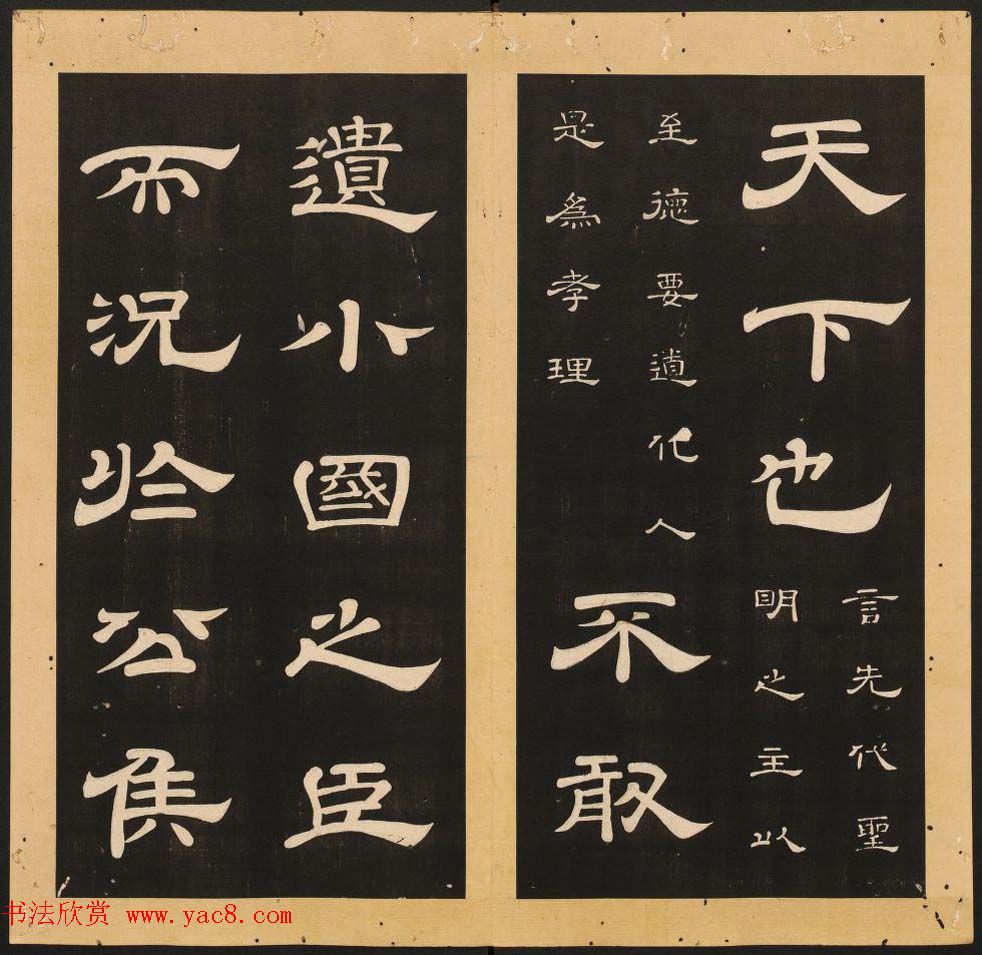 天下也
言先代聖
明之主以
至德要道化人
是爲孝理
不敢
遺小國之臣
而況於公侯
书法欣赏 www.yac8.com